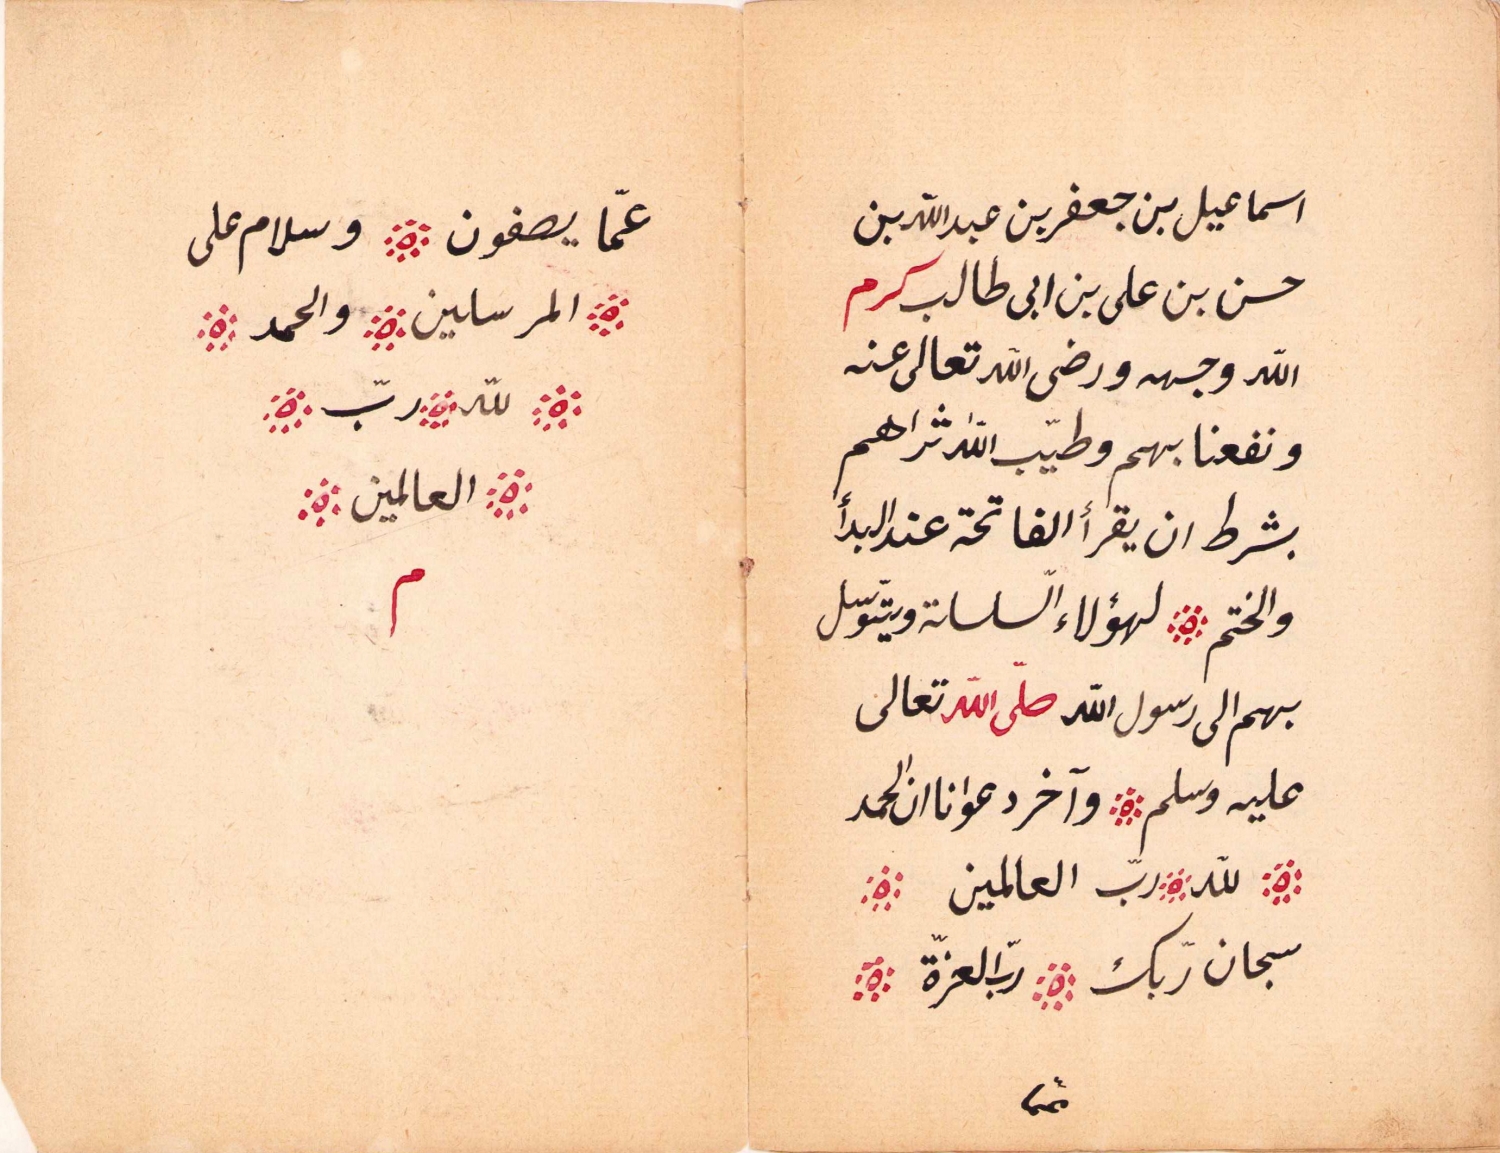 اسماعيل بن جعفر بن عبدالله بن
حسن بن على بن ابى طالب كرم
الله وجهه ورضى الله تعالى عنه
ونفعنا بهم وطيّب الله ثراهم
بشرط ان يقرأ الفاتحة عند البدأ
والختم لهؤلاء السلسلة ويتوسّل
بهم الى رسول الله صلّى الله تعالى
عليه وسلم وآخر دعوانا ان الحمد
للّه ربّ العالمين
سبحان ربّك ربّ العزّة
عمّا
عمّا يصفون وسلام على
المرسلين والحمد
للّه ربّ
العالمين
م